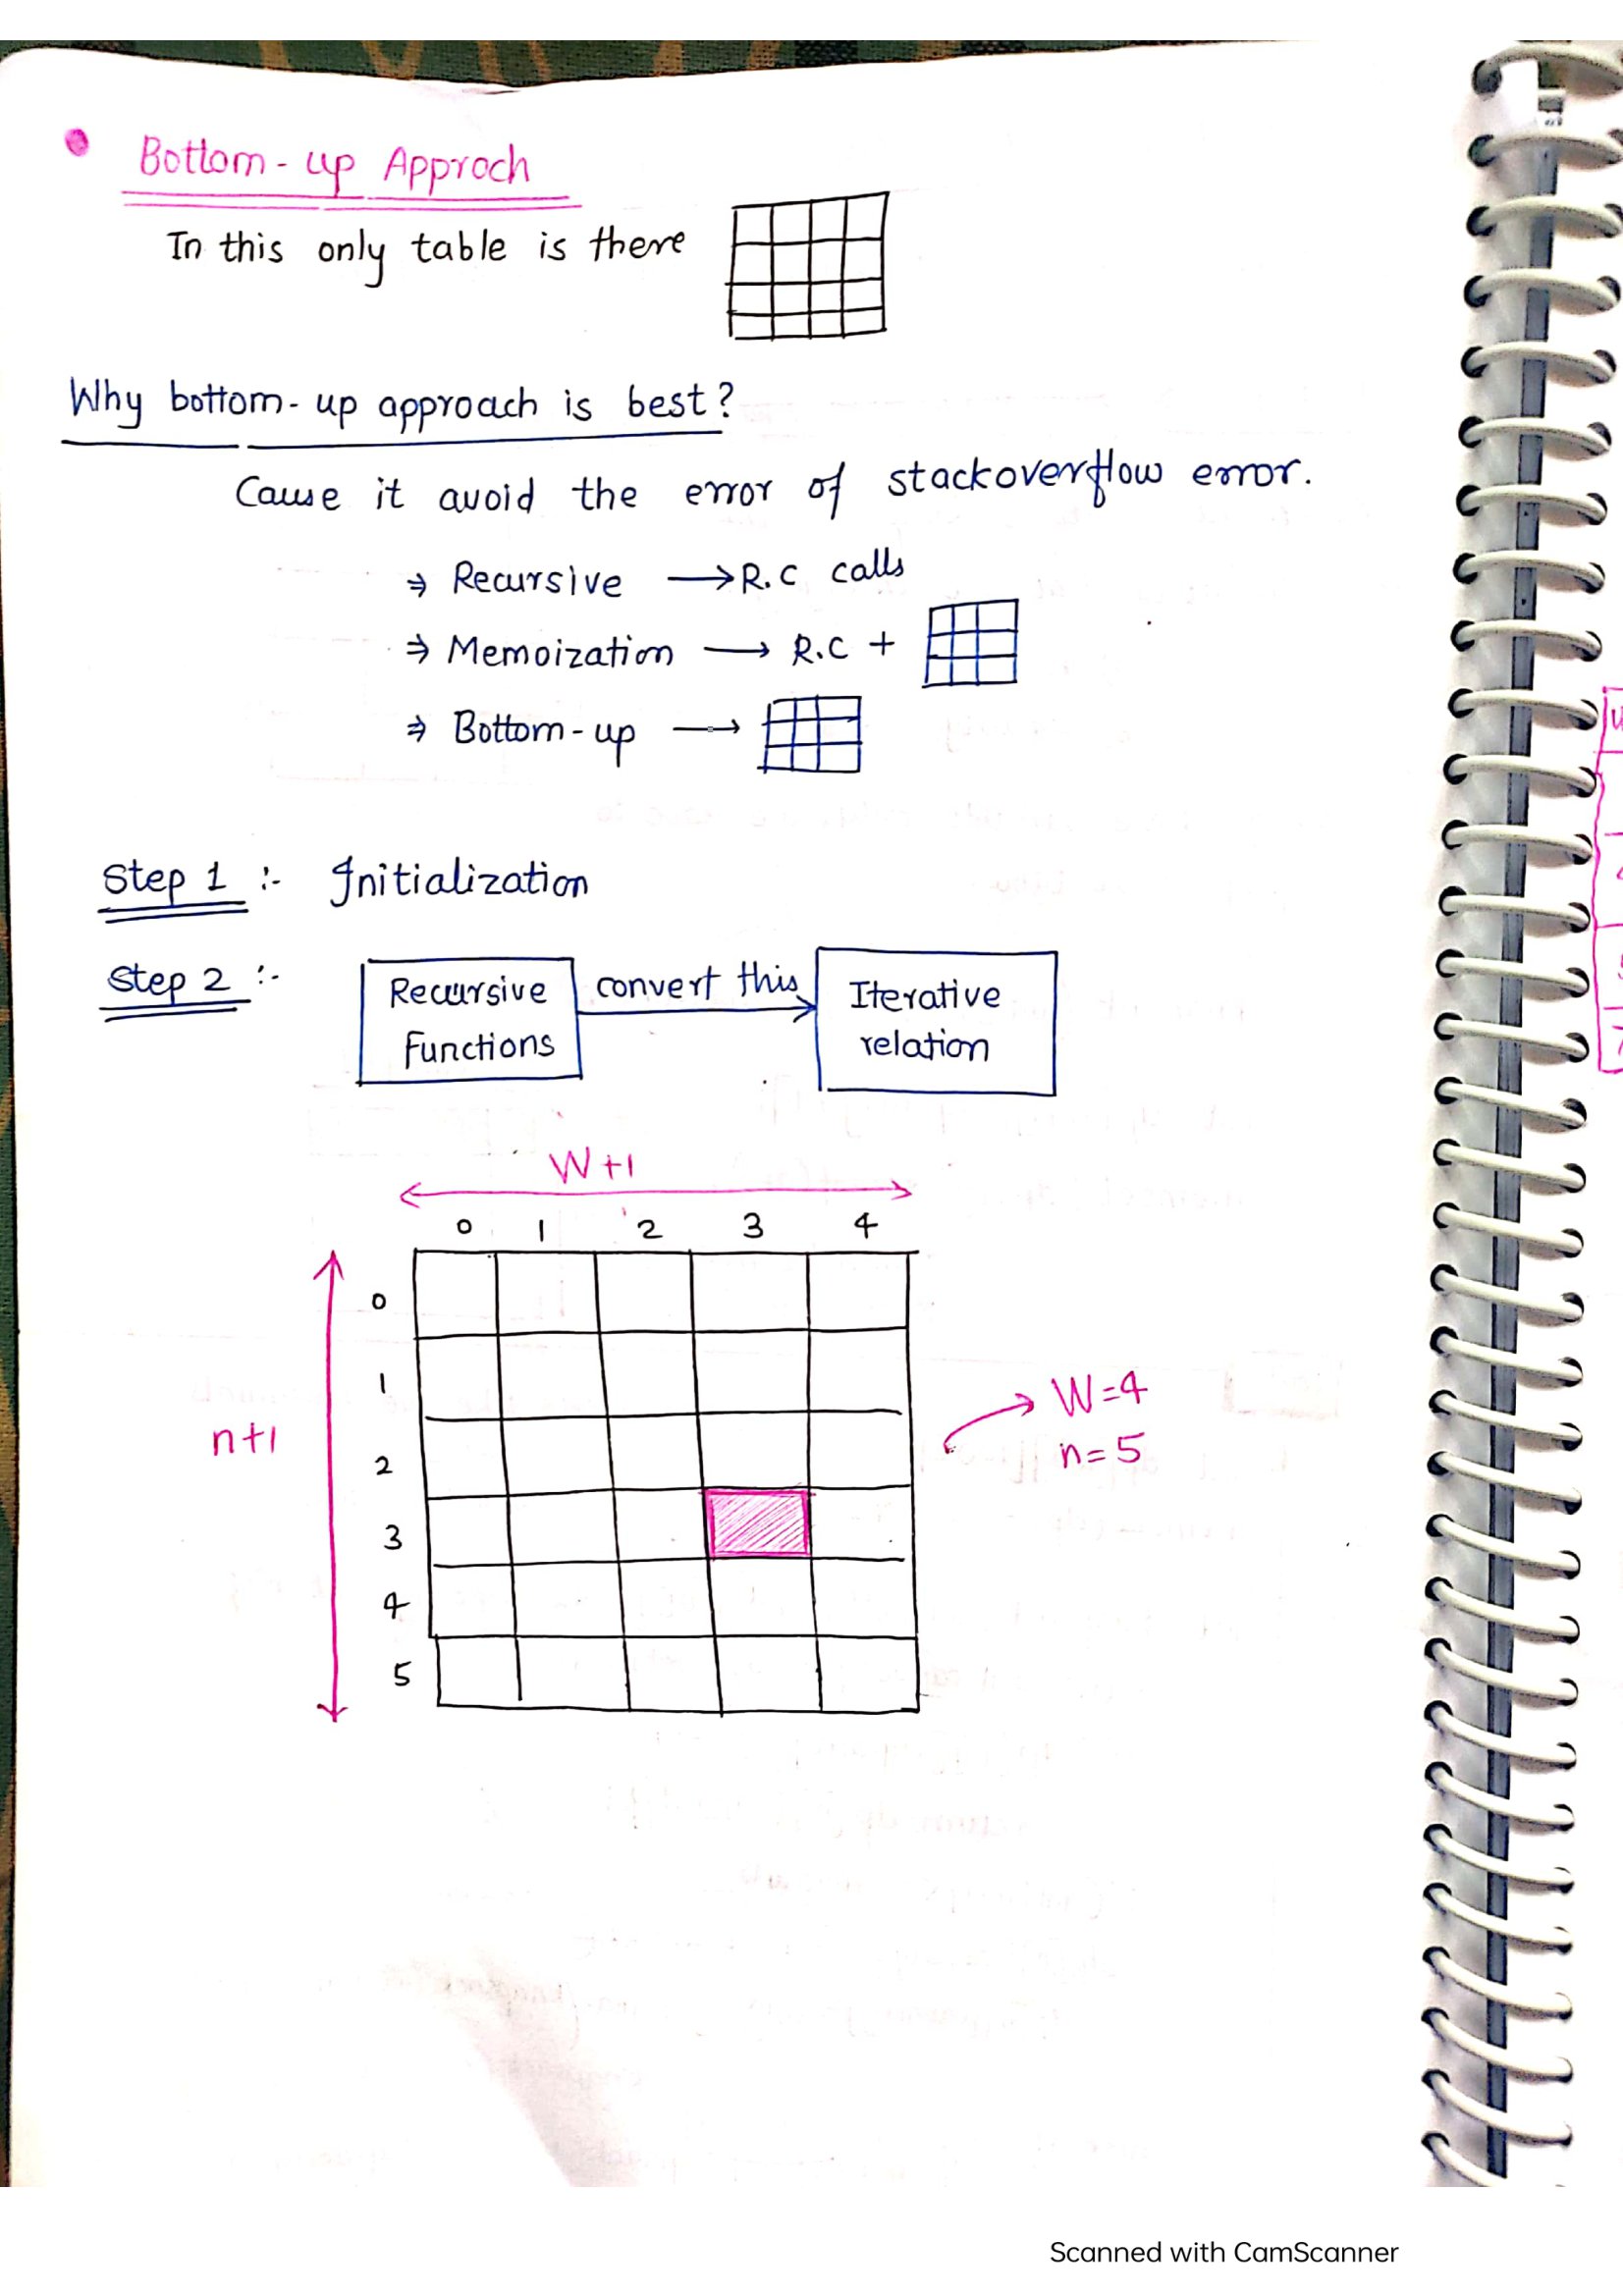 Bottom-up Approch
In this only table is there
Why bottom-up approach is best?
Cause it avoid the error of stackoverflow error.
⇒ Recursive → R.C calls
⇒ Memoization → R.C +
⇒ Bottom-up →
Step 1 :- Initialization
Step 2 :-
Recursive Functions
convert this
Iterative relation
W+1
0 1 2 3 4
0
1
n+1
2
3
4
5
W=4
n=5
Scanned with CamScanner